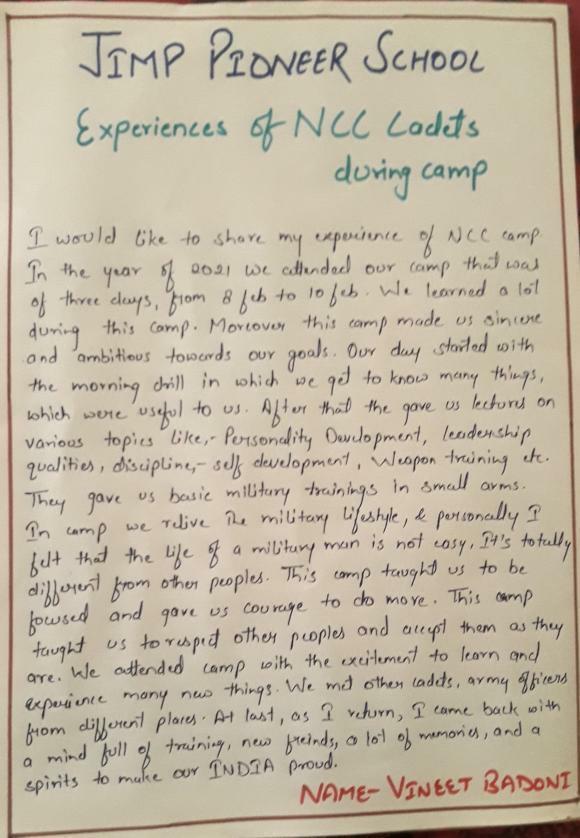 JIMP PIONEER SCHOOL
Experiences of NCC Cadets
during camp
I would like to share my experience of NCC camp.
In the year of 2021 we attended our camp that was
of three days, from 8 feb to 10 feb. We learned a lot
during this camp. Moreover this camp made us sincere
and ambitious towards our goals. Our day started with
the morning drill in which we get to know many things,
which were useful to us. After that the gave us lectures on
various topics like,- Personality Development, leadership
qualities, discipline,- self development, Weapon training etc.
They gave us basic military trainings in small arms.
In camp we relive the military lifestyle, & personally I
felt that the life of a military man is not easy, It's totally
different from other peoples. This camp taught us to be
focused and gave us courage to do more. This camp
taught us to respect other peoples and accept them as they
are. We attended camp with the excitement to learn and
experience many new things. We met other cadets, army officers
from different places. At last, as I return, I came back with
a mind full of training, new freinds, a lot of memories, and a
spirits to make our INDIA proud.
NAME- VINEET BADONI